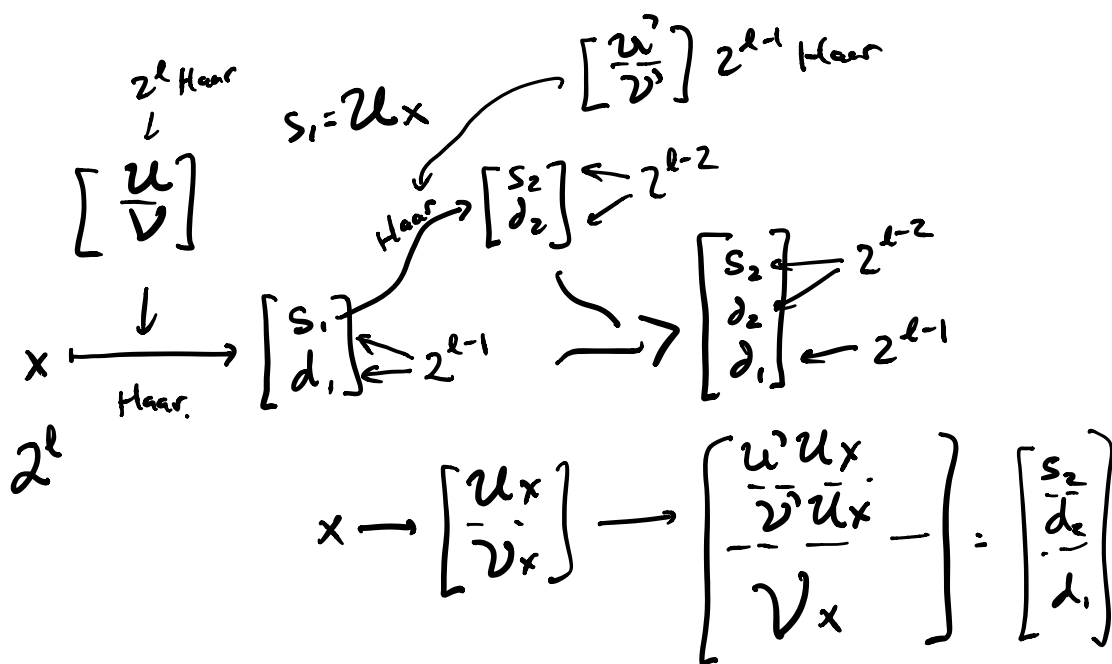 2^l Haar
[U / V]
s₁ = Ux
[U' / V'] 2^{l-1} Haar
Haar
[s₂ d₂] 2^{l-2}
x
Haar.
2^l
[s₁ d₁] 2^{l-1}
[s₂ d₂ d₁] 2^{l-2}
2^{l-1}
x → [Ux / Vx] → [U'Ux / V'Ux / Vx] = [s₂ / d₂ / d₁]